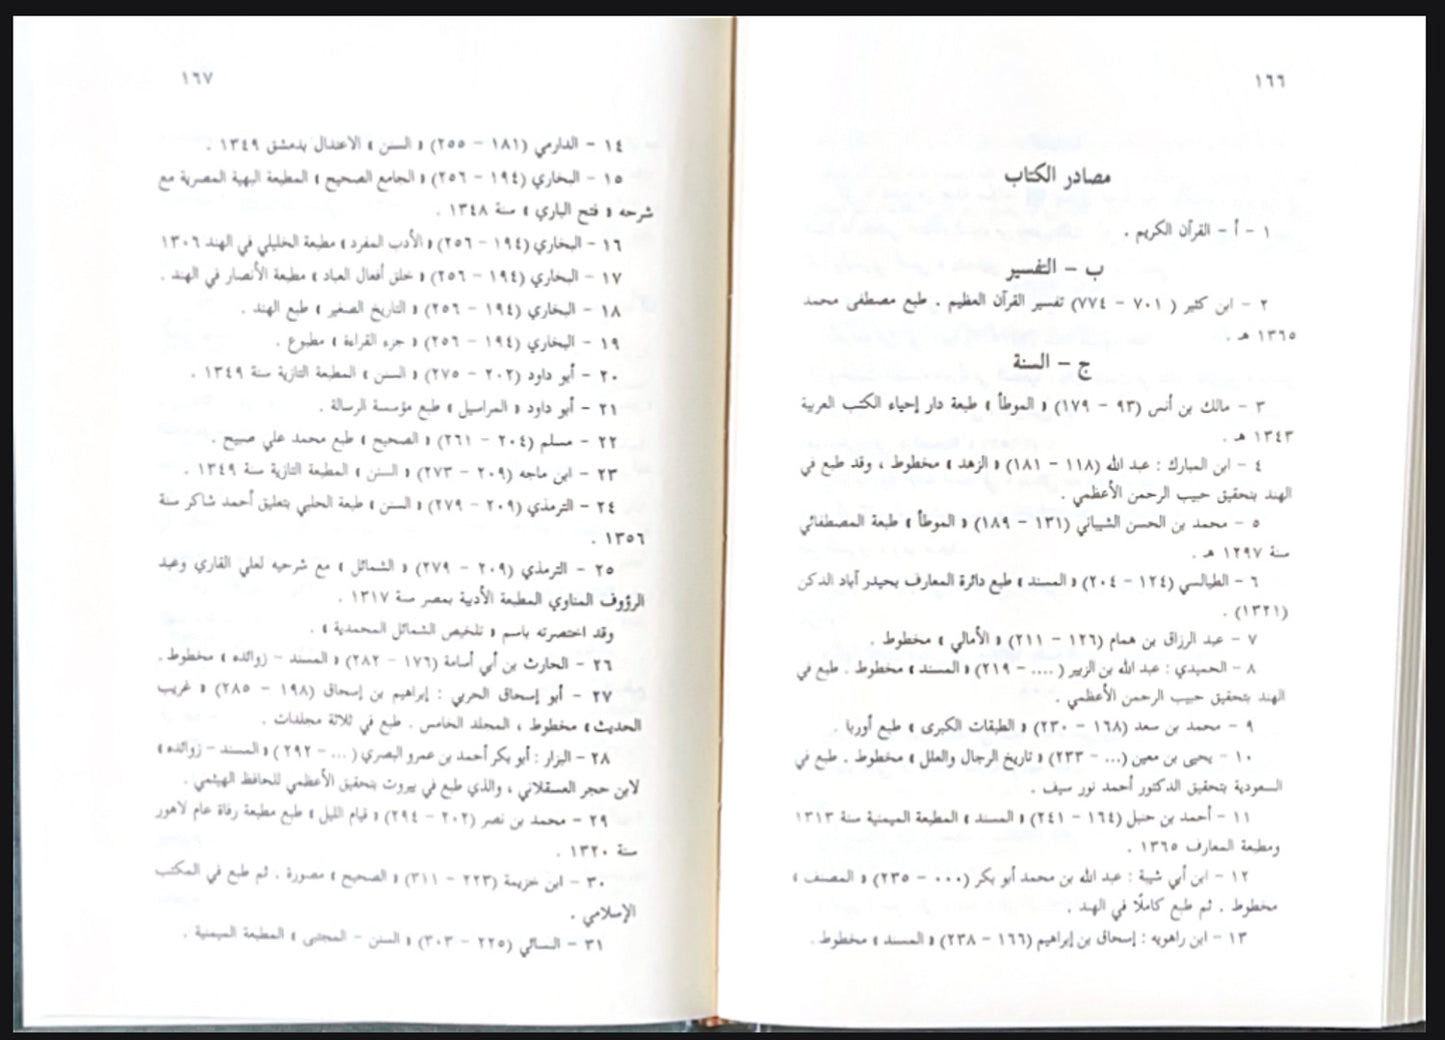 ١٦٦
مصادر الكتاب
١ - أ - القرآن الكريم .
ب - التفسير
٢ - ابن كثير ( ٧٠١ - ٧٧٤) تفسير القرآن العظيم . طبع مصطفى محمد
١٣٦٥ هـ .
ج - السنة
٣ - مالك بن أنس (٩٣ - ١٧٩) « الموطأ » طبعة دار إحياء الكتب العربية
١٣٤٣ هـ .
٤ - ابن المبارك : عبد الله (١١٨ - ١٨١) « الزهد » مخطوط ، وقد طبع في
الهند بتحقيق حبيب الرحمن الأعظمي .
٥ - محمد بن الحسن الشيباني (١٣١ - ١٨٩) « الموطأ » طبعة المصطفائي
سنة ١٢٩٧ هـ .
٦ - الطيالسي (١٢٤ - ٢٠٤) « المسند » طبع دائرة المعارف بحيدر آباد الدكن
(١٣٢١) .
٧ - عبد الرزاق بن همام (١٢٦ - ٢١١) « الأمالي » مخطوط .
٨ - الحميدي : عبد الله بن الزبير ( .... - ٢١٩) « المسند » مخطوط . طبع في
الهند بتحقيق حبيب الرحمن الأعظمي .
٩ - محمد بن سعد (١٦٨ - ٢٣٠) « الطبقات الكبرى » طبع أوربا .
١٠ - يحيى بن معين (... - ٢٣٣) « تاريخ الرجال والعلل » مخطوط . طبع في
السعودية بتحقيق الدكتور أحمد نور سيف .
١١ - أحمد بن حنبل (١٦٤ - ٢٤١) « المسند » المطبعة الميمنية سنة ١٣١٣
ومطبعة المعارف ١٣٦٥ .
١٢ - ابن أبي شيبة : عبد الله بن محمد أبو بكر (٠٠٠ - ٢٣٥) « المصنف »
مخطوط . ثم طبع كاملًا في الهند .
١٣ - ابن راهويه : إسحاق بن إبراهيم (١٦٦ - ٢٣٨) « المسند » مخطوط .
١٦٧
١٤ - الدارمي (١٨١ - ٢٥٥) « السنن » الاعتدال بدمشق ١٣٤٩ .
١٥ - البخاري (١٩٤ - ٢٥٦) « الجامع الصحيح » المطبعة البهية المصرية مع
شرحه « فتح الباري » سنة ١٣٤٨ .
١٦ - البخاري (١٩٤ - ٢٥٦) « الأدب المفرد » مطبعة الخليلي في الهند ١٣٠٦
١٧ - البخاري (١٩٤ - ٢٥٦) « خلق أفعال العباد » مطبعة الأنصار في الهند .
١٨ - البخاري (١٩٤ - ٢٥٦) « التاريخ الصغير » طبع الهند .
١٩ - البخاري (١٩٤ - ٢٥٦) « جزء القراءة » مطبوع .
٢٠ - أبو داود (٢٠٢ - ٢٧٥) « السنن » المطبعة التازية سنة ١٣٤٩ .
٢١ - أبو داود « المراسيل » طبع مؤسسة الرسالة .
٢٢ - مسلم (٢٠٤ - ٢٦١) « الصحيح » طبع محمد علي صبيح .
٢٣ - ابن ماجه (٢٠٩ - ٢٧٣) « السنن » المطبعة التازية سنة ١٣٤٩ .
٢٤ - الترمذي (٢٠٩ - ٢٧٩) « السنن » طبعة الحلبي بتعليق أحمد شاكر سنة
١٣٥٦ .
٢٥ - الترمذي (٢٠٩ - ٢٧٩) « الشمائل » مع شرحيه لعلي القاري وعبد
الرؤوف المناوي المطبعة الأدبية بمصر سنة ١٣١٧ .
وقد اختصرته باسم « تلخيص الشمائل المحمدية » .
٢٦ - الحارث بن أبي أسامة (١٧٦ - ٢٨٢) « المسند - زوائده » مخطوط .
٢٧ - أبو إسحاق الحربي : إبراهيم بن إسحاق (١٩٨ - ٢٨٥) « غريب
الحديث » مخطوط ، المجلد الخامس . طبع في ثلاثة مجلدات .
٢٨ - البزار : أبو بكر أحمد بن عمرو البصري ( ... - ٢٩٢ ) « المسند - زوائده »
لابن حجر العسقلاني ، والذي طبع في بيروت بتحقيق الأعظمي للحافظ الهيثمي .
٢٩ - محمد بن نصر (٢٠٢ - ٢٩٤) « قيام الليل » طبع مطبعة رفاة عام لاهور
سنة ١٣٢٠ .
٣٠ - ابن خزيمة (٢٢٣ - ٣١١) « الصحيح » مصورة . ثم طبع في المكتب
الإسلامي .
٣١ - النسائي (٢٢٥ - ٣٠٣) « السنن - المجتبى » المطبعة الميمنية .